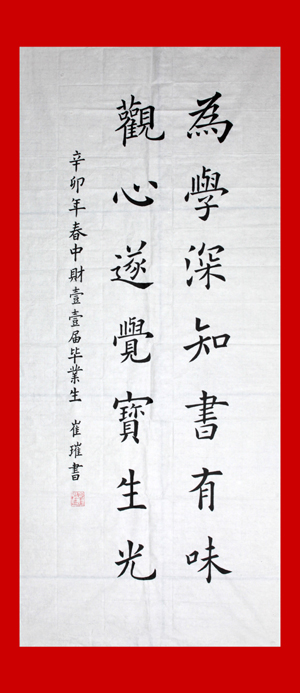 為學深知書有味
觀心遂覺寶生光
辛卯年春中財壹壹届毕業生 崔璀書